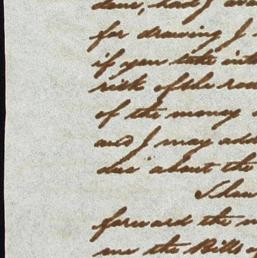 done, had I
for drawing I
if you take into
risk of the
of the money
and I may add
due about the
I have
forward the
me the Bills of